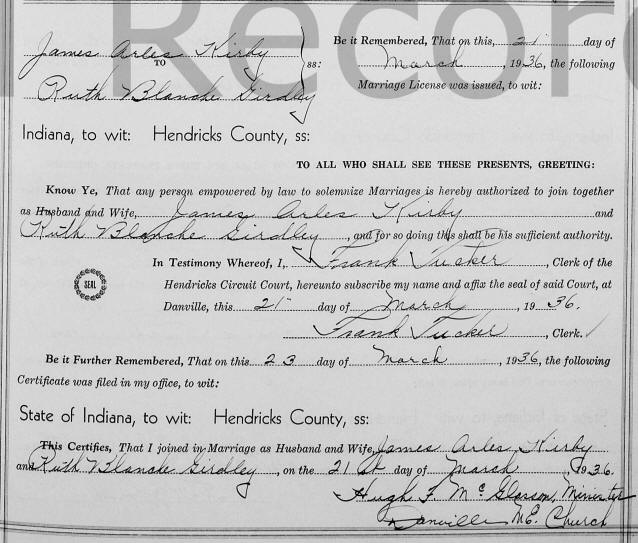 Record
James Arles Kirby
TO
Ruth Blanche Girdley
ss:
Be it Remembered, That on this, 21 day of
March, 1936, the following
Marriage License was issued, to wit:
Indiana, to wit: Hendricks County, ss:
TO ALL WHO SHALL SEE THESE PRESENTS, GREETING:
Know Ye, That any person empowered by law to solemnize Marriages is hereby authorized to join together
as Husband and Wife, James Arles Kirby and
Ruth Blanche Girdley, and for so doing this shall be his sufficient authority.
In Testimony Whereof, I, Frank Tucker, Clerk of the
Hendricks Circuit Court, hereunto subscribe my name and affix the seal of said Court, at
SEAL
Danville, this 21 day of March, 1936.
Frank Tucker, Clerk.
Be it Further Remembered, That on this 23 day of March, 1936, the following
Certificate was filed in my office, to wit:
State of Indiana, to wit: Hendricks County, ss:
This Certifies, That I joined in Marriage as Husband and Wife, James Arles Kirby
and Ruth Blanche Girdley, on the 21st day of March 1936.
Hugh F. Mc Minister
Danville M.E. Church